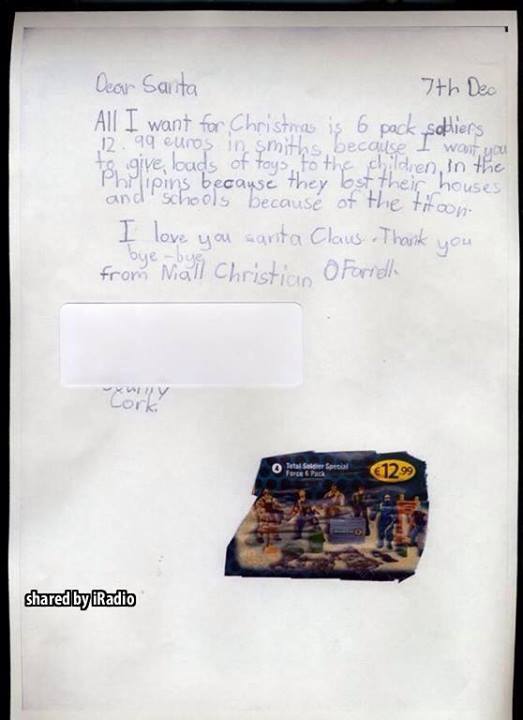 Dear Santa 7th Dec
All I want for Christmas is 6 pack soldiers
12.99 euros in smiths because I want you
to give loads of toys to the children in the
Philipins because they lost their houses
and schools because of the tifoon.
I love you santa Claus. Thank you
bye-bye
from Niall Christian O Farrell.
Cork.
4 Total Soldier Special
Force 6 Pack
€12.99
shared by iRadio